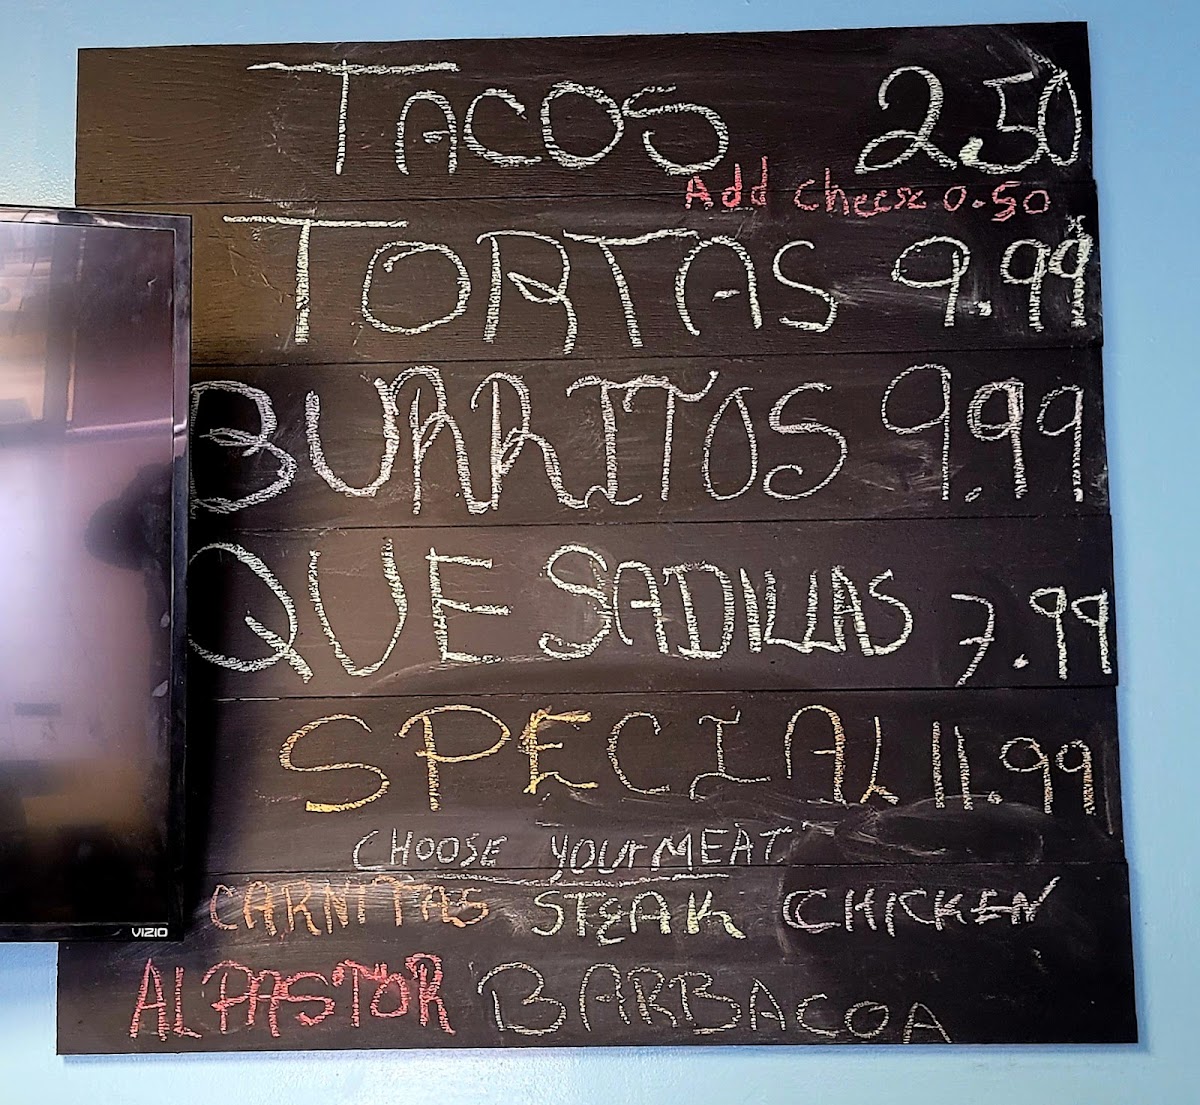 TACOS 2.50
Add Cheese 0.50
TORTAS 9.99
BURRITOS 9.99
QUESADILLAS 7.99
SPECIAL 11.99
CHOOSE YOUr MEAT
CARNITAS STEAK CHICKEN
AL PASTOR BARBACOA
VIZIO